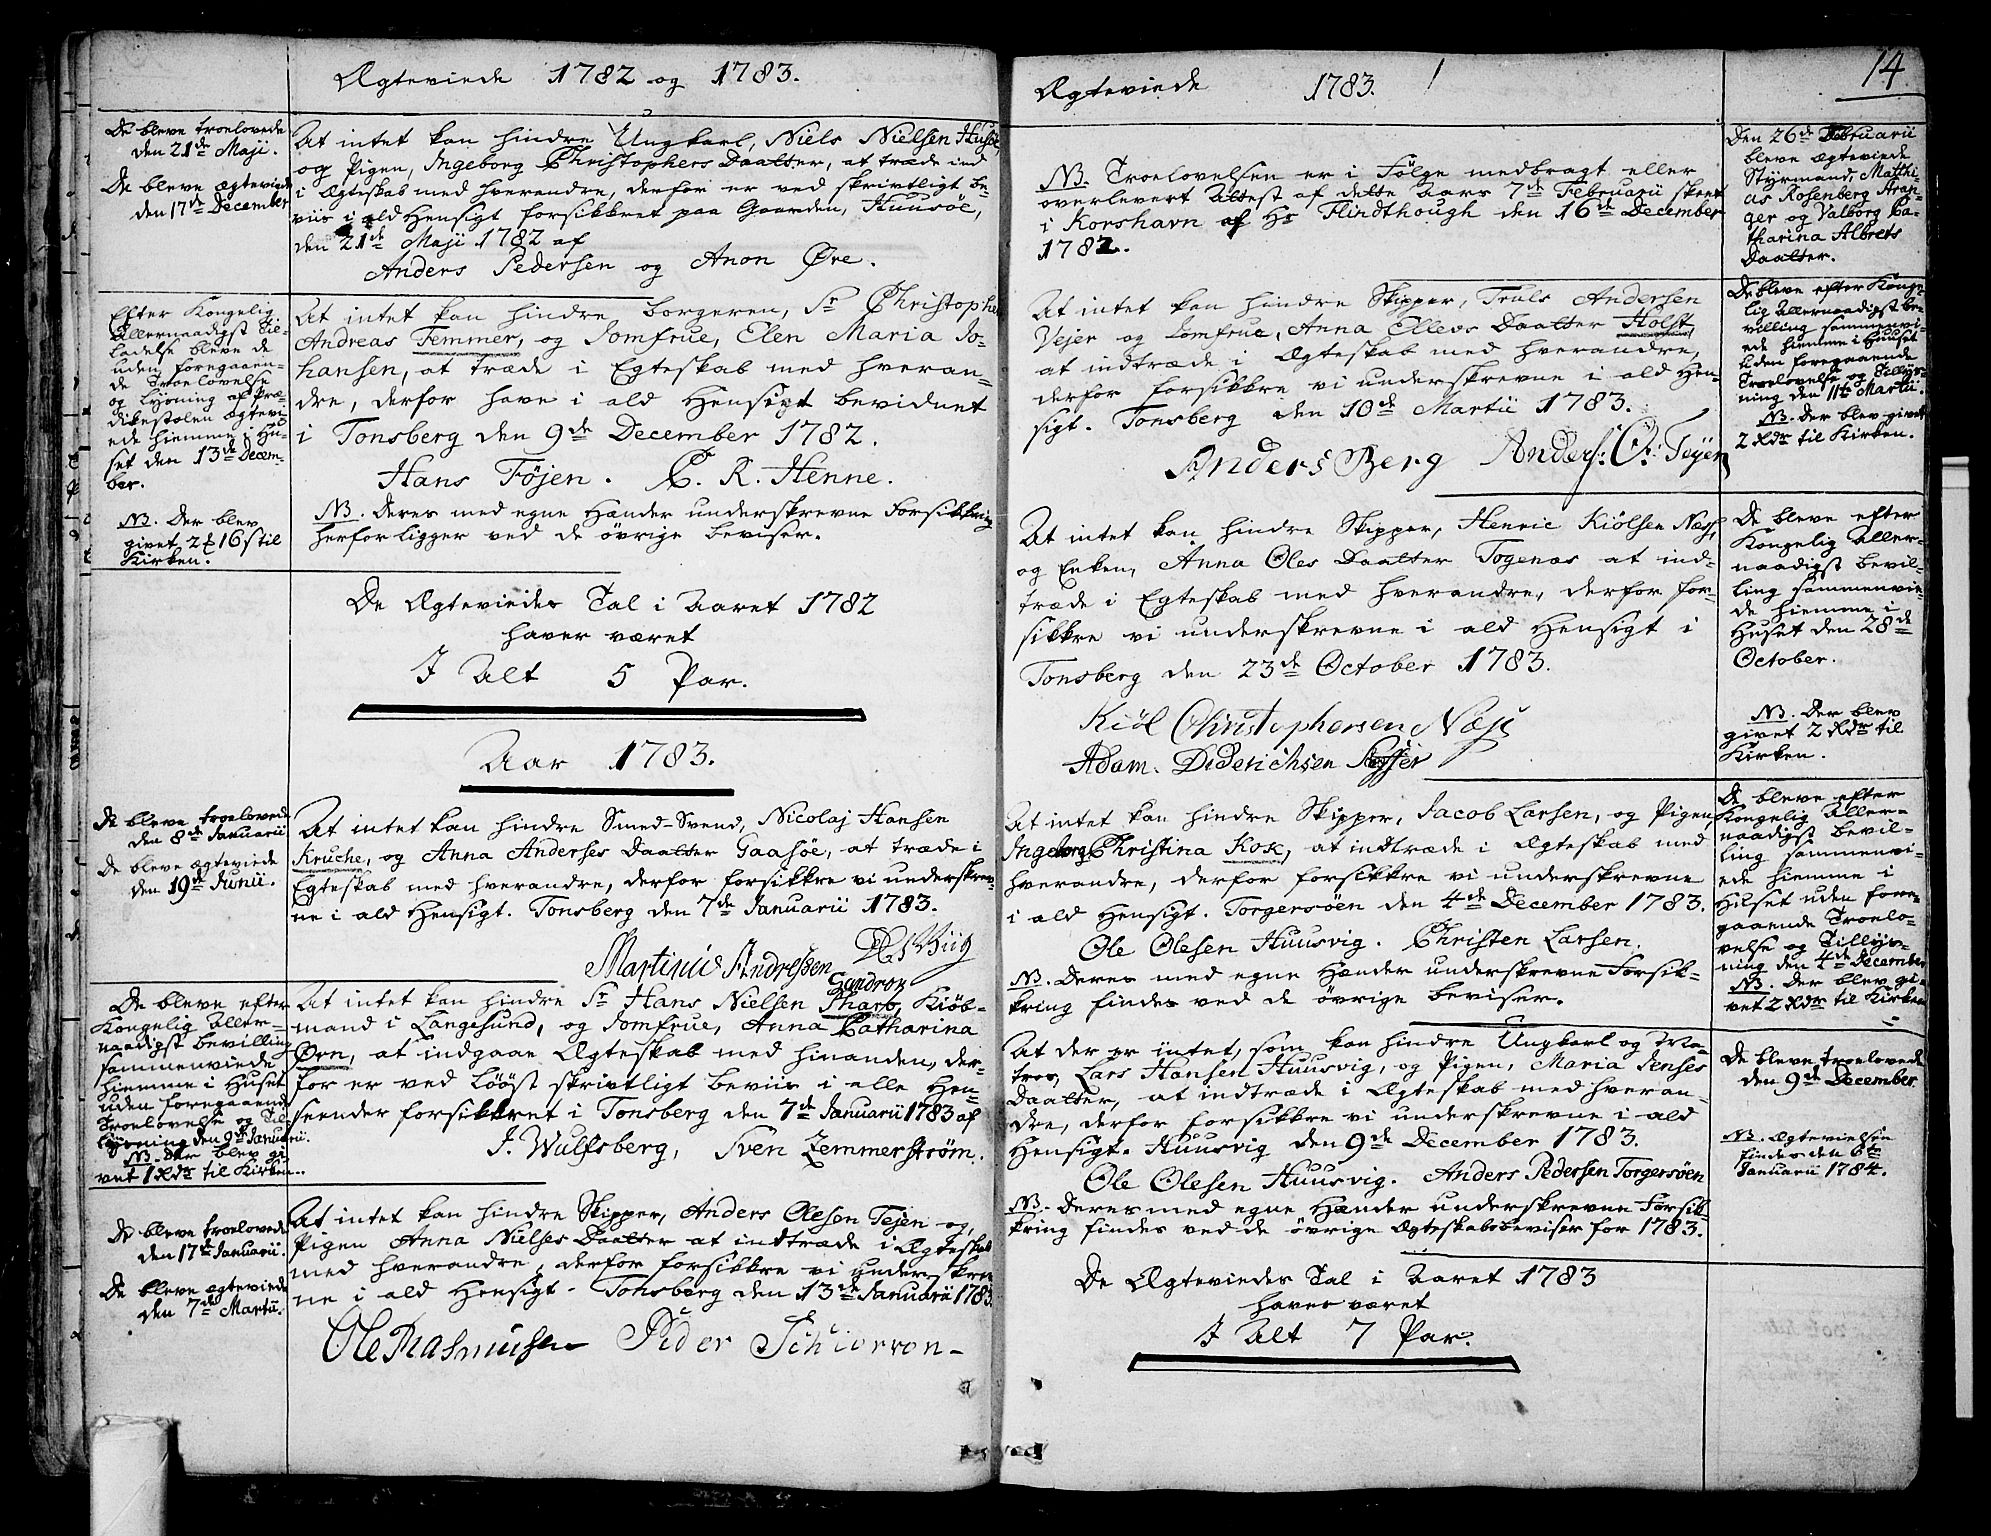 Ægteviede 1782 og 1783.
De bleve troelovede
den 21de Maji.
De bleve ægteviede
den 17de December
At intet kan hindre Ungkarl, Niels Nielsen Husøe,
og Pigen, Ingeborg Christophers Daatter, at træde ind
i Ægteskab med hverandre, derfor er ved skrivtligt be-
viis i ald Hensigt forsikkret paa Gaarden, Huusöe,
den 21de Maji 1782 af
Anders Pedersen og Anon Øre.
Efter Kongelig
Allernaadigst Til-
ladelse bleve de
uden foregaaen-
de Troelovelse
og Lysning af Præ-
dikestolen ægtevi-
ede hiemme i Hu-
set den 13de Decem-
ber.
NB. Der blev
givet 2 16 s til
Kirken.
At intet kan hindre Borgeren, Sr Christopher
Andreas Femmer, og Jomfrue, Elen Maria Jo-
hansen, at træde i Egteskab med hveran-
dre, derfor have i ald Hensigt bevidnet
i Tonsberg den 9de December 1782.
Hans Föjen. C. R. Henne.
NB. Deres med egne Hænder underskrevne Forsikkring
herfor ligger ved de övrige beviser.
De Ægteviedes Tal i Aaret 1782
haver været
I Alt 5 Par.
Aar 1783.
De bleve troelovede
den 8de Januarii
De bleve ægteviede
den 19de Junii.
At intet kan hindre Smed-Svend, Nicolaj Hansen
Kruche, og Anna Anderses Daatter Gaasöe, at træde i
Egteskab med hverandre, derfor forsikkre vi underskrev-
ne i ald Hensigt. Tonsberg den 7de Januarii 1783.
Martinus Andressen
De bleve efter
Kongelig Aller-
naadigst bevilling
sammenviede
hiemme i Huset
uden foregaaende
Troelovelse og Til-
lysning den 9de Januarii.
NB. Der blev gi-
vet 1 Rdr til Kirken.
At intet kan hindre Sr Hans Nielsen Tharb, Kiöb-
mand i Langesund, og Jomfrue, Anna Catharina
Ørn, at indgaae Ægteskab med hinanden, der-
for er ved lööst skrivtligt beviis i alle Hen-
seender forsikkret i Tonsberg den 7de Januarii 1783 af
J. Wulfsberg, Sven Zemmerström.
De bleve troelovede
den 17de Januarii.
De bleve ægteviede
den 7de Martii.
At intet kan hindre Skipper, Anders Olesen Tejen og,
Pigen Anna Nielses Daatter at indtræde i Ægteskab
med hverandre, derfor forsikkre vi underskrev-
ne i ald Hensigt. Tonsberg den 13de Januarii 1783.
Ole Rasmussen Peder Schiorron
Ægteviede 1783.
14
NB. Troelovelsen er i Fölge medbragt eller
overlevert Attest af dette Aars 7de Februarii skeet
i Korshavn af Hr Flindthough den 16de December
1782.
Den 26de Februarii
bleve ægteviede
Styrmand, Matthi-
as Rosenberg Aran-
ger og Valborg Ca-
tharina Albrets
Daatter.
At intet kan hindre Skipper, Truls Andersen
Vejer og Jomfrue, Anna Ellevs Daatter Holst,
at indtræde i Ægteskab med hverandre,
derfor forsikkre vi underskrevne i ald Hen-
sigt. Tonsberg den 10de Martii 1783.
Anders Berg Anders: O: Tejen
De bleve efter Konge-
lig Allernaadigst be-
villing sammenvi-
ede hiemme i Huuset
uden foregaaende
Troelovelse og Tillys-
ning den 11te Martii.
NB. Der blev givet
2 Rdr til Kirken.
At intet kan hindre Skipper, Henric Kiölsen Næss,
og Enken, Anna Oles Daatter Togenæs at ind-
træde i Egteskab med hverandre, derfor for-
sikkre vi underskrevne i ald Hensigt i
Tonsberg den 23de October 1783.
Kiöl Christophersen Næss
Adam Diderichsen
De bleve efter
Kongelig Aller-
naadigst bevil-
ling sammenvie-
de hiemme i
Huset den 28de
October.
NB. Der blev
givet 2 Rdr til
Kirken.
At intet kan hindre Skipper, Jacob Larsen, og Pigen
Ingeborg Christina Kox, at indtræde i Ægteskab med
hverandre, derfor forsikkre vi underskrevne
i ald Hensigt. Torgersöen den 4de December 1783.
Ole Olesen Huusvig. Christen Larsen.
NB. Deres med egne Hænder underskrevne Forsik-
kring findes ved de övrige beviser.
De bleve efter
Kongelig Aller-
naadigst bevil-
ling sammenvi-
ede hiemme i
Huset uden fore-
gaaende Troelo-
velse og Tillys-
ning den 4de December
NB. Der blev gi-
vet 2 Rdr til Kirken
At der er intet, som kan hindre Ungkarl og Ma-
tros, Lars Hansen Huusvig, og Pigen, Maria Jenses
Daatter, at indtræde i Ægteskab med hveran-
dre, derfor forsikkre vi underskrevne i ald
Hensigt. Huusvig den 9de December 1783.
Ole Olesen Huusvig. Anders Pedersen Torgersöen
NB. Deres med egne Hænder underskrevne Forsik-
kring findes ved de övrige Ægteskabsbeviser for 1783.
De bleve troelovede
den 9de December
NB. Ægtevielsen
findes den 6te
Januarii 1784.
De Ægteviedes Tal i Aaret 1783
haver været
I Alt 7 Par.